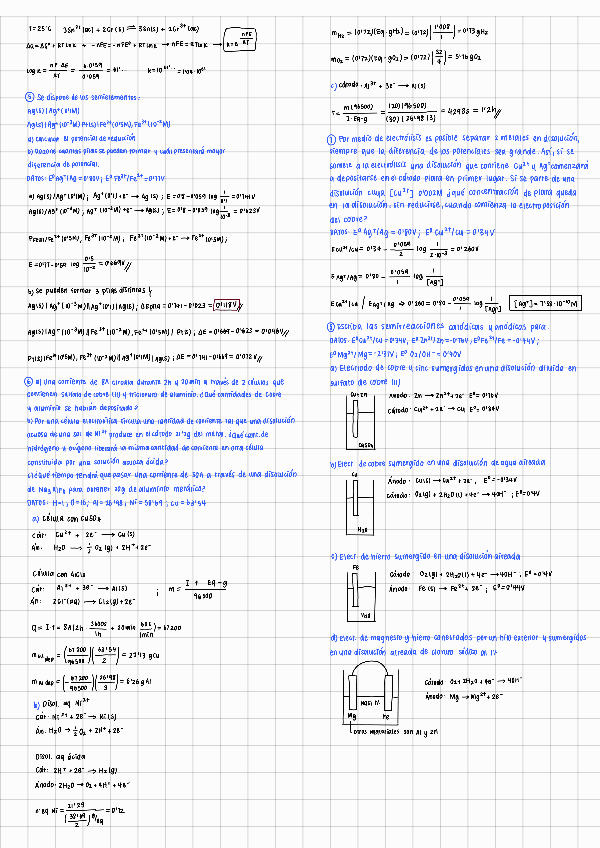 T=25°C 3Sn²⁺(ac) + 2Cr(s) ⇌ 3Sn(s) + 2Cr³⁺(ac)
ΔG=ΔG°+RTLnK → -nFE=-nFE°+RTLnK → nFE=RTLnK →
⑤ Se dispone de los semielementos:
Ag(s)|Ag⁺(0'1M)
Ag(s)|Ag⁺(10⁻³M) Pt(s)|Fe³⁺(0'5M), Fe²⁺(10⁻²M)
a) calcular el potencial de reducción
b) Razona cuantas pilas se pueden formar y cuál presentará mayor
diferencia de potencial.
DATOS: E°Ag⁺/Ag=0'80V; E°Fe³⁺/Fe²⁺=0'77V
a) Ag(s)/Ag⁺(0'1M); Ag⁺(0'1)+e⁻ → Ag(s); E=0'8-0'059 log 1/0'1 = 0'741V
Ag(s)/Ag⁺(10⁻³M); Ag⁺(10⁻³M)+e⁻ → Ag(s); E=0'8-0'059 log 1/10⁻³ = 0'623V
b) Se pueden formar 3 pilas distintas
Ag(s)|Ag⁺(10⁻³M)||Ag⁺(0'1)|Ag(s); ΔEpila=0'741-0'623= 0'118V
Ag(s)|Ag⁺(10⁻³M)||Fe³⁺(10⁻²M), Fe²⁺(0'5M)|Pt(s); ΔE=0'669-0'623=0'046V
Pt(s)|Fe²⁺(0'5M), Fe³⁺(10⁻²M)||Ag⁺(0'1M)|Ag(s); ΔE=0'741-0'669=0'072V
⑥ a) Una corriente de 8A circula durante 2h y 20min a través de 2 células que
contienen sulfato de cobre (II) y tricloruro de aluminio. ¿Qué cantidades de cobre
y aluminio se habrán depositado?
b) Por una célula electrolítica circula una cantidad de corriente tal que una disolución
acuosa de una sal de Ni²⁺ produce en el cátodo 21'29 del metal. ¿Qué cant. de
hidrógeno u oxígeno liberará la misma cantidad de corriente en una célula
constituida por una solución acuosa ácida?
c) ¿Qué tiempo tendrá que pasar una corriente de 50A a través de una disolución
de Na₃AlF₆ para obtener 20g de aluminio metálico?
DATOS: H=1; O=16; Al=26'98; Ni=58'69; Cu=63'54
a) Célula con CuSO₄
Cát: Cu²⁺ + 2e⁻ → Cu(s)
Án: H₂O → ½O₂(g) + 2H⁺+2e⁻
Célula con AlCl₃
Cát: Al³⁺ + 3e⁻ → Al(s) ; m = I·t·Eq-g / 96500
Án: 2Cl⁻(aq) → Cl₂(g)+2e⁻
Q = I·t = 8A|2h · 3600s/1h + 20min 60s/1min| = 67200
m Cu dep = (67200/96500)(63'54/2) = 22'13 gCu
m Al dep = (67200/96500)(26'98/3) = 6'26 g Al
b) Disol. aq Ni²⁺
Cát: Ni²⁺+2e⁻ → Ni(s)
Án: H₂O → ½O₂ + 2H⁺+2e⁻
Disol. aq ácida
Cát: 2H⁺ + 2e⁻ → H₂(g)
Ánodo: 2H₂O → O₂ + 4H⁺ + 4e⁻
mH₂ = (0'72)(Eq-gH₂) = (0'72)(1'008/1) = 0'73gH₂
mO₂ = (0'72)(Eq-gO₂) = (0'72)(32/4) = 5'76gO₂
c) Cátodo: Al³⁺ + 3e⁻ → Al(s)
⑦ Por medio de electrólisis es posible separar 2 metales en disolución,
siempre que la diferencia de los potenciales sea grande. Así, si se
somete a la electrólisis una disolución que contiene Cu²⁺ y Ag⁺ comenzará
a depositarse en el cátodo plata en primer lugar. Si se parte de una
disolución cuya [Cu²⁺] 0'002M ¿qué concentración de plata queda
en la disolución, sin reducirse, cuando comienza la electroposición
del cobre?
DATOS: E°Ag⁺/Ag=0'80V; E°Cu²⁺/Cu=0'34V
E Cu²⁺/Cu = 0'34 - 0'059/2 log 1/2·10⁻³ = 0'260V
E Ag⁺/Ag = 0'80 - 0'059/1 log 1/[Ag⁺]
E Cu²⁺/Cu / E Ag⁺/Ag ⇒ 0'260 = 0'80 - 0'059/1 log 1/[Ag⁺]
⑧ Escriba las semirreacciones catódicas y anódicas para:
a) Electrodo de cobre y cinc sumergidos en una disolución diluida en
sulfato de cobre (II)
Ánodo: Zn → Zn²⁺+2e⁻ E°=0'76V
Cátodo: Cu²⁺+2e⁻ → Cu E°=0'34V
CuSO₄
b) Elect. de cobre sumergido en una disolución de agua aireada
Cu
Ánodo: Cu(s) → Cu²⁺+2e⁻; E°=-0'34V
Cátodo: O₂(g)+2H₂O(l)+4e⁻ → 4OH⁻; E°=0'4V
H₂O
c) Elect. de hierro sumergido en una disolución aireada
Fe
Cátodo: O₂(g)+2H₂O(l)+4e⁻ → 4OH⁻; E°=0'4V
Ánodo: Fe(s) → Fe²⁺+2e⁻; E°=0'44V
d) Elect. de magnesio y hierro conectados por un hilo exterior y sumergidos
en una disolución aireada de cloruro sódico al 1%
Cátodo: O₂+2H₂O+4e⁻ → 4OH⁻
Ánodo: Mg → Mg²⁺+2e⁻
NaCl 1%
Mg Fe
Otros materiales son Al y Zn